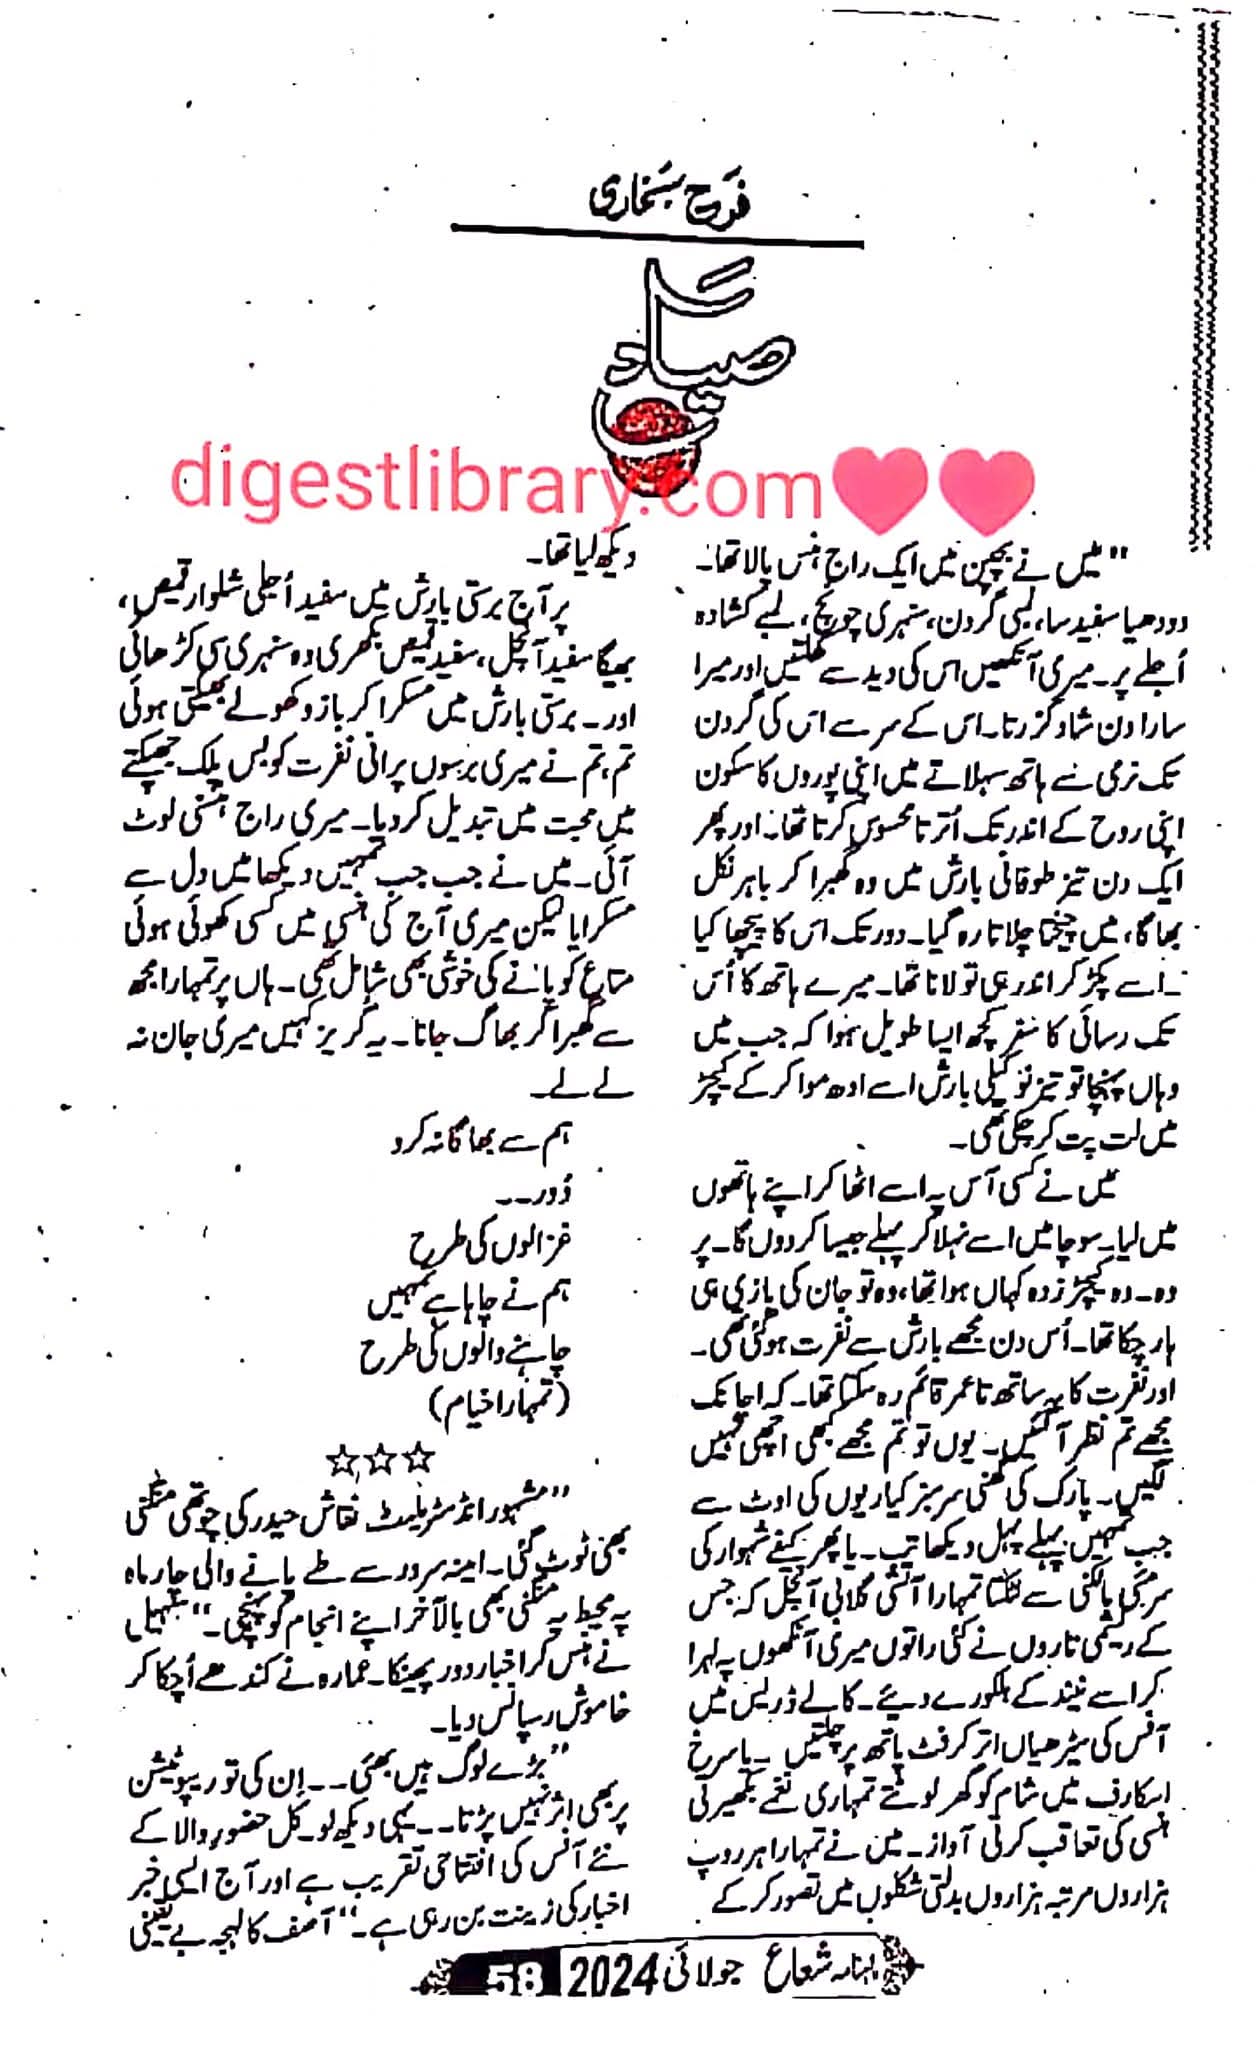 فرح بخاری
صیاد
digestlibrary.com
"میں نے بچپن میں ایک راج ہنس پالا تھا۔
دودھیا سفید سا، لمبی گردن، سنہری چونچ، لمبے کشادہ
اُجلے پر۔ میری آنکھیں اس کی دید سے کھلتیں اور میرا
سارا دن شاد گزرتا۔ اس کے سر سے اس کی گردن
تک نرمی سے ہاتھ سہلاتے میں اپنی پوروں کا سکون
اپنی روح کے اندر تک اُترتا محسوس کرتا تھا۔ اور پھر
ایک دن تیز طوفانی بارش میں وہ گھبرا کر باہر نکل
بھاگا، میں چیختا چلاتا رہ گیا۔ دور تک اس کا پیچھا کیا
۔ اسے پکڑ کر اندر ہی تو لانا تھا۔ میرے ہاتھ کا اُس
تک رسائی کا سفر کچھ ایسا طویل ہوا کہ جب میں
وہاں پہنچا تو تیز نوکیلی بارش اسے ادھ موا کر کے کیچڑ
میں لت پت کر چکی تھی۔
میں نے کسی آس پہ اسے اٹھا کر اپنے ہاتھوں
میں لیا۔ سوچا میں اسے نہلا کر پہلے جیسا کردوں گا۔ پر
وہ۔ وہ کیچڑ زدہ کہاں ہوا تھا، وہ تو جان کی بازی ہی
ہار چکا تھا۔ اُس دن مجھے بارش سے نفرت ہوگئی تھی۔
اور نفرت کا یہ ساتھ تا عمر قائم رہ سکتا تھا۔ کہ اچانک
مجھے تم نظر آگئیں۔ یوں تو تم مجھے کبھی اچھی نہیں
لگیں۔ پارک کی گھنی سرسبز کیاریوں کی اوٹ سے
جب تمہیں پہلے پہل دیکھا تب۔ یا پھر کیفے شہوار کی
سرمئی بالکنی سے لٹکتا تمہارا آتشی گلابی آنچل کہ جس
کے ریشمی تاروں نے کئی راتوں میری آنکھوں پہ لہرا
کر اسے نیند کے ہلکورے دیے۔ کالے ڈریس میں
آفس کی سیڑھیاں اتر کر فٹ پاتھ پر چلتیں۔ یا سرخ
اسکارف میں شام کو گھر لوٹتے تمہاری نغمے بکھیرتی
ہنسی کی تعاقب کرتی آواز۔ میں نے تمہارا ہر روپ
ہزاروں مرتبہ ہزاروں بدلتی شکلوں میں تصور کر کے
دیکھ لیا تھا۔
پر آج برستی بارش میں سفید اُجلی شلوار قمیص،
بھیگا سفید آنچل، سفید قمیص پہ بکھری وہ سنہری سی کڑھائی
اور۔ برستی بارش میں مسکرا کر بازو کھولے بھیگتی ہوئی
تم، تم نے میری برسوں پرانی نفرت کو بس پلک جھپکتے
میں محبت میں تبدیل کردیا۔ میری راج ہنسنی لوٹ
آئی۔ میں نے جب جب تمہیں دیکھا میں دل سے
مسکرایا لیکن میری آج کی ہنسی میں کسی کھوئی ہوئی
متاع کو پانے کی خوشی بھی شامل تھی۔ ہاں پر تمہارا مجھ
سے گھبرا کر بھاگ جانا۔ یہ گریز کہیں میری جان نہ
لے لے۔
ہم سے بھاگا نہ کرو
دُور۔۔
غزالوں کی طرح
ہم نے چاہا ہے تمہیں
چاہنے والوں کی طرح
(تمہارا خیام)
☆☆☆
"مشہور انڈسٹریلسٹ نقاش حیدر کی چوتھی منگنی
بھی ٹوٹ گئی۔ امینہ سرور سے طے پانے والی چار ماہ
پہ محیط یہ منگنی بھی بالآخر اپنے انجام کو پہنچی۔" سہیل
نے ہنس کر اخبار دور پھینکا۔ عمارہ نے کندھے اُچکا کر
خاموش رسپانس دیا۔
"بڑے لوگ ہیں بھئی۔۔ اِن کی تو ریپوٹیشن
پر بھی اثر نہیں پڑتا۔۔ یہی دیکھ لو۔ کل حضور والا کے
نئے آفس کی افتتاحی تقریب ہے اور آج ایسی خبر
اخبار کی زینت بن رہی ہے۔" آصف کا لہجہ بے یقینی
ماہنامہ شعاع جولائی 2024 58